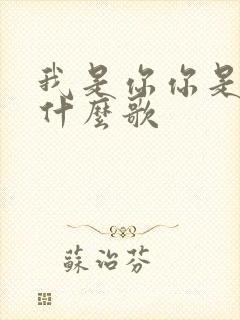 我是你你是
什麼歌
蘇治芬